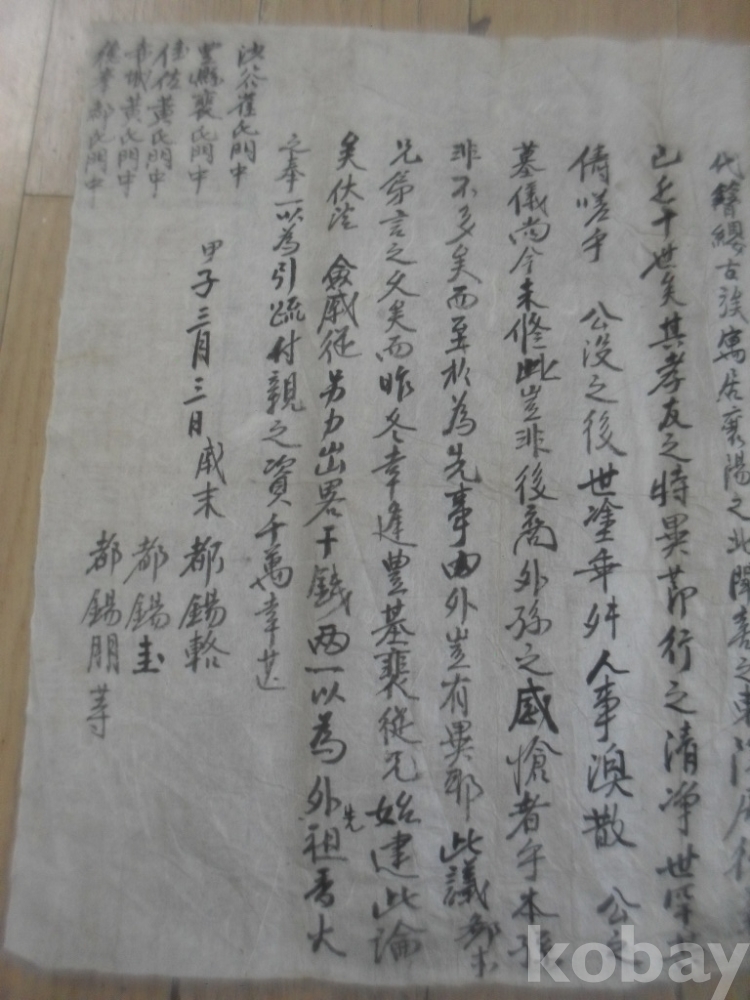 代簪纓古族寓居襄陽之北開
已近十世矣其孝友之特異節行之清淨世罕
儔嗟乎 公没之後世塗乖舛人事渙散 公
墓儀尚今未修此豈非後裔外孫之感愴者乎本孫
非不多矣而至於為先事內外豈有異耶此議
兄弟言之久矣而昨冬幸逢豊基裵從兄始建此論
矣伏望 僉戚從另力出畧干錢兩一以為外先祖香火
之奉一以為引疏付親之資千萬幸甚
甲子三月三日 戚末 都錫輅
都錫圭
都錫朋 等
崔氏門中
豊縣裵氏門中
黃氏門中
黃氏門中
都氏門中
kobay